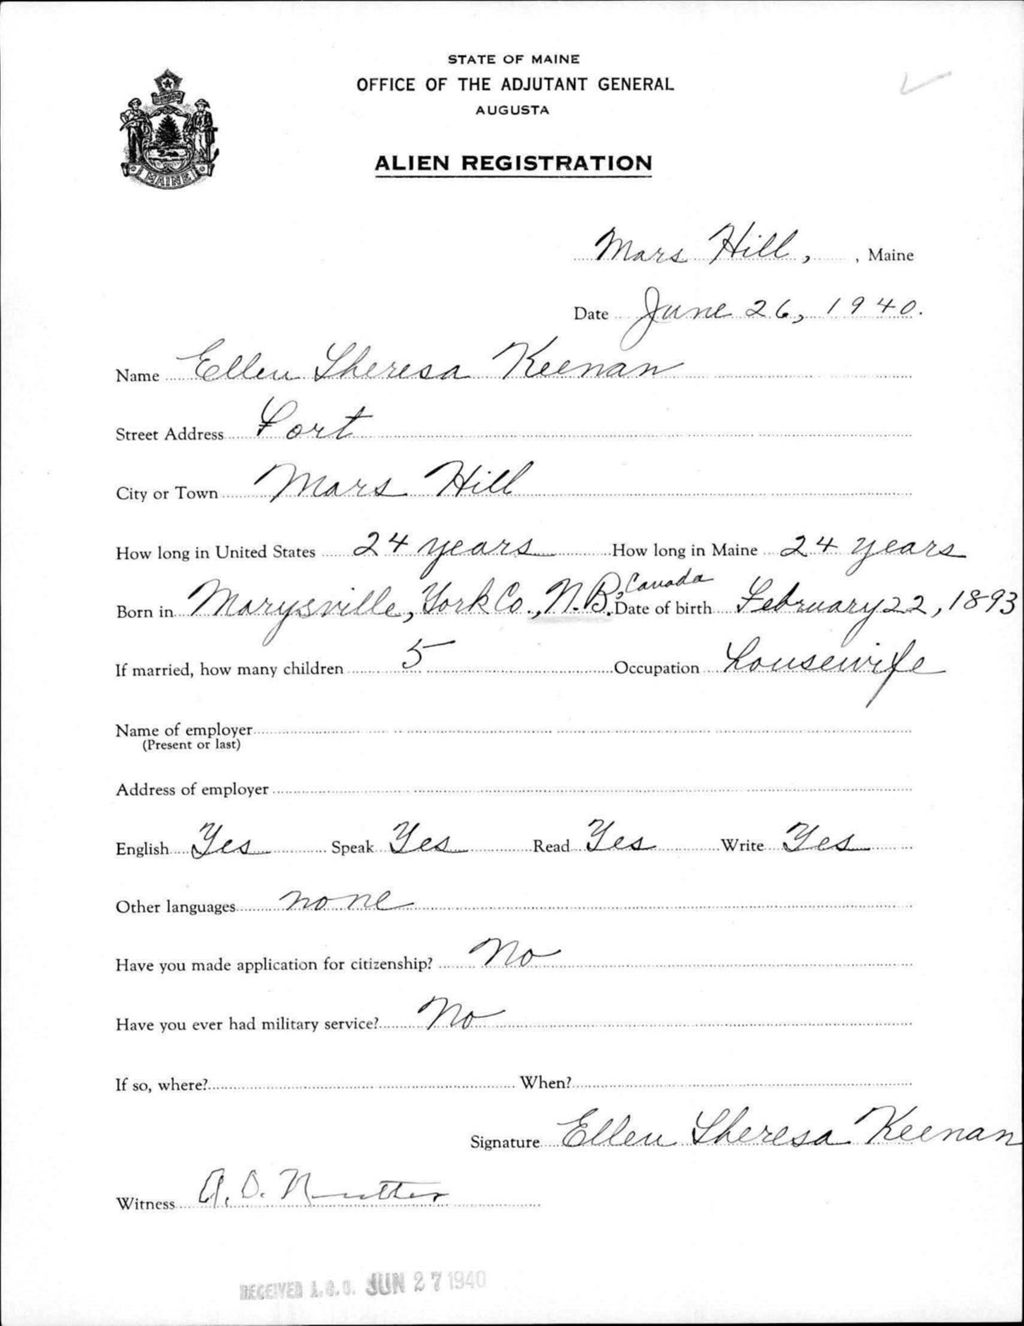 STATE OF MAINE
OFFICE OF THE ADJUTANT GENERAL
AUGUSTA
ALIEN REGISTRATION
MAINE
Mars Hill, , Maine
Date June 26, 1940.
Name Ellen Theresa Keenan
Street Address Fort
City or Town Mars Hill
How long in United States 24 years How long in Maine 24 years
Born in Marysville, York Co., N.B., Canada Date of birth February 22, 1893
If married, how many children 5 Occupation housewife
Name of employer
(Present or last)
Address of employer
English Yes Speak Yes Read Yes Write Yes
Other languages none
Have you made application for citizenship? No
Have you ever had military service? No
If so, where? When?
Signature Ellen Theresa Keenan
Witness A. D. Nutter
RECEIVED A.G.O. JUN 27 1940